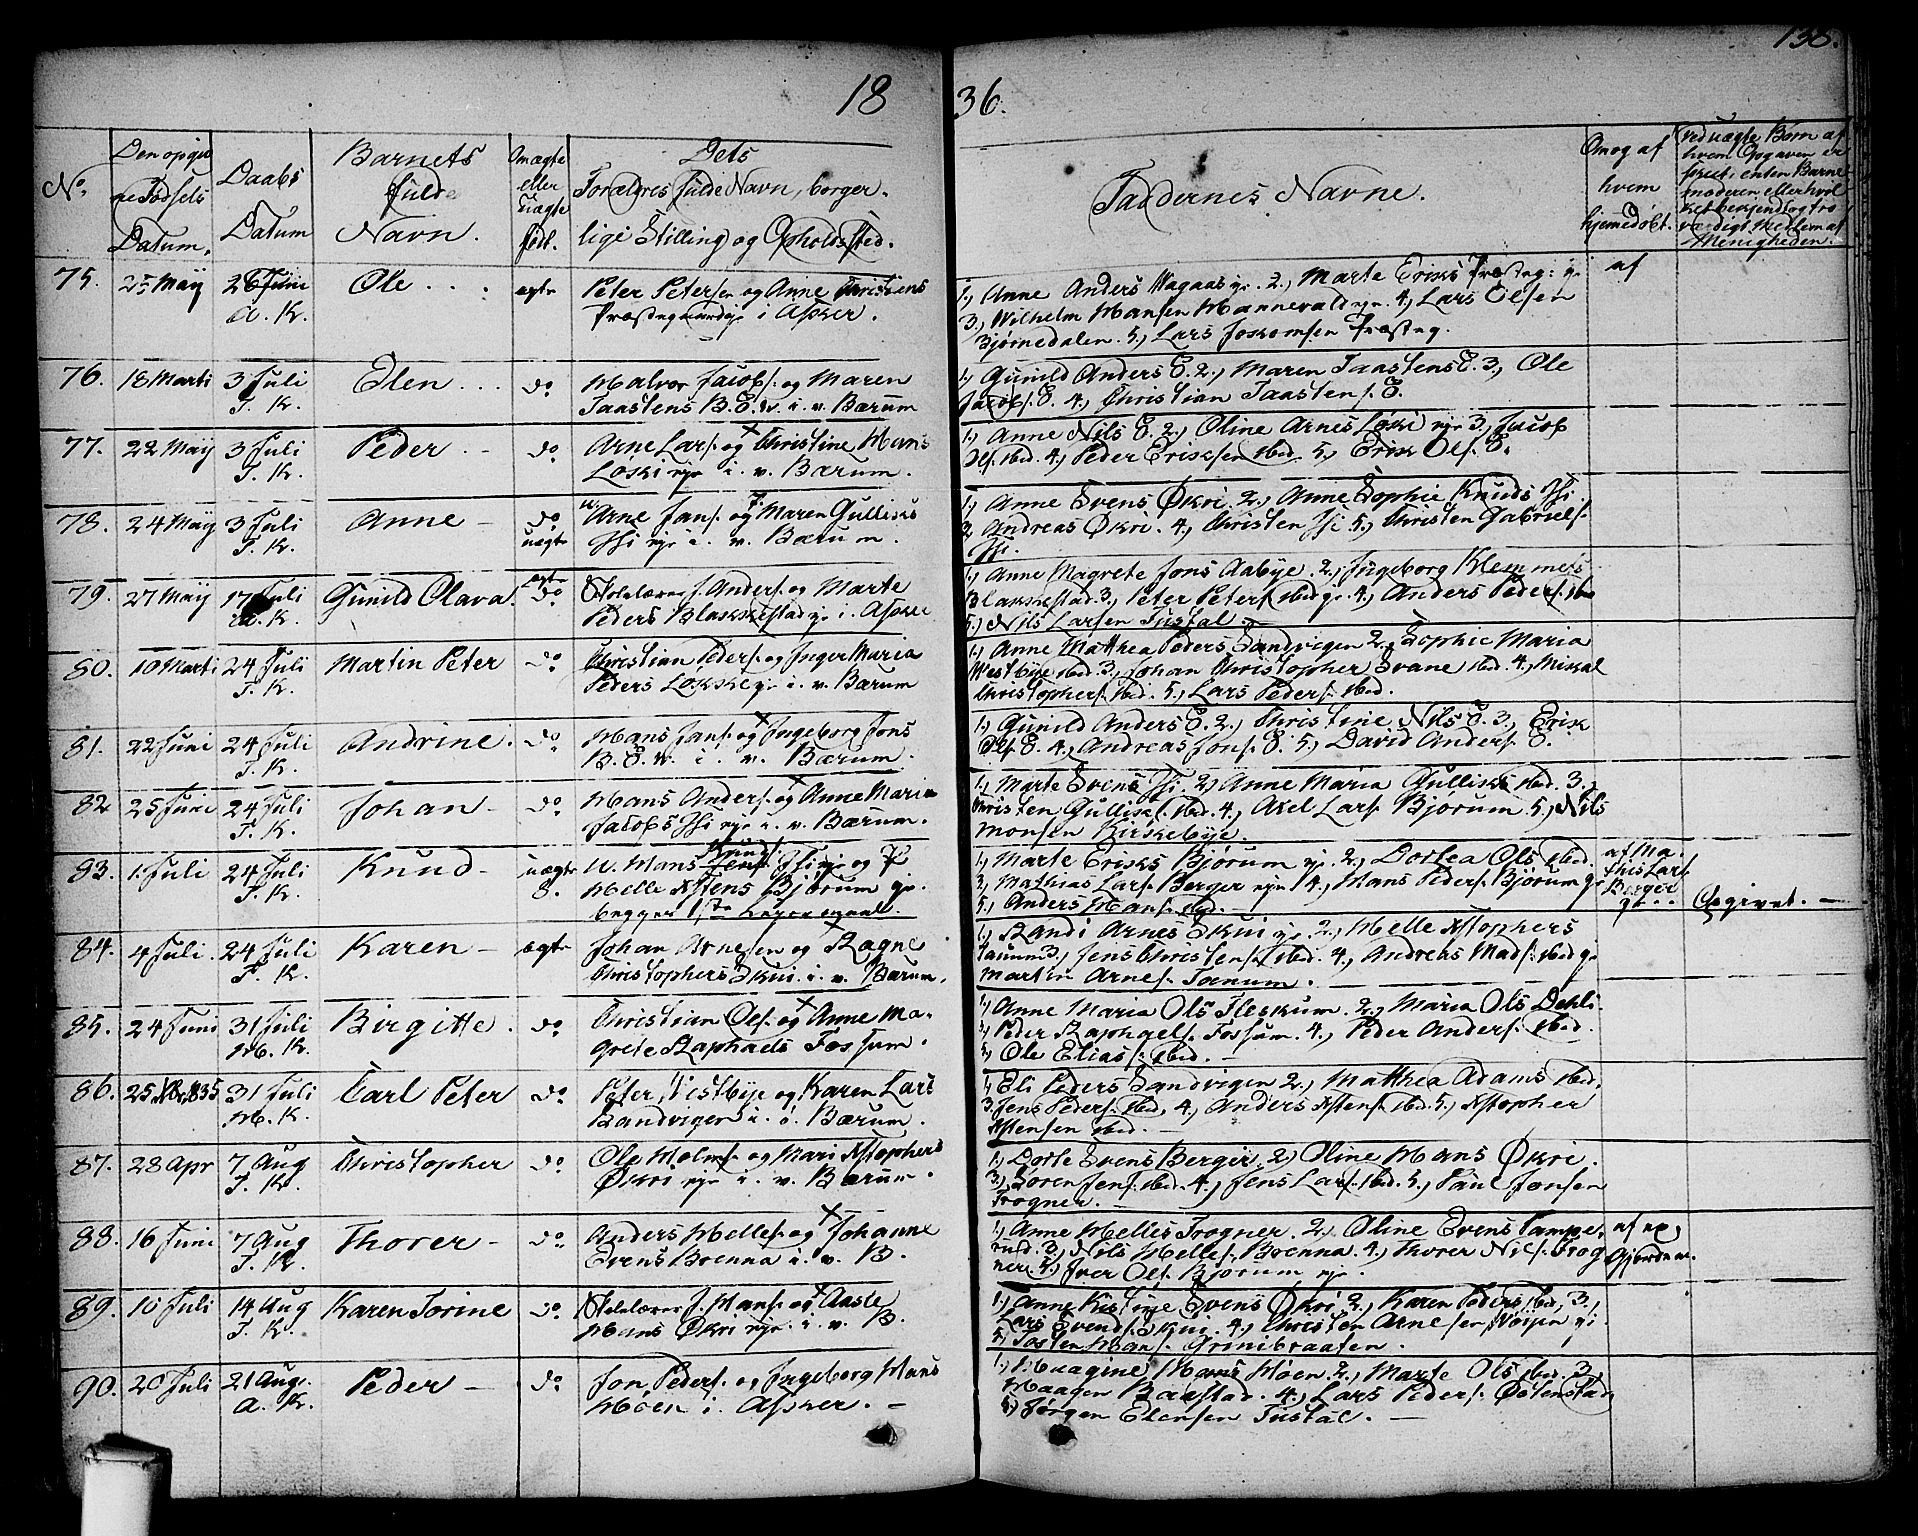 138.
18 36.
No.
Den opgi
ne Fødsels
Datum,
Daabs
Datum
Barnets
fulde
Navn.
Omægte
eller
uægte
født.
Dets
Forældres fulde Navn, borger-
lige Stilling og Opholdsted.
Faddernes Navne.
Om og af
hvem
hjemedøbt.
Ved uægte Børn af
hvem Opgaven er
skeet: enten Barne-
moderen eller hvil-
ket bekjendt og tro
værdigt Medlem af
Menigheden.
75. 25 May 26 Juni
A. K.
Ole ægte
Peter Petersen og Anne
Præstegaardeje i Asker.
1, Anne Anders Hagaas ye 2, Marte Eriks Præsteg: ye
3, Wilhelm Hansen Hannevald eje 4, Lars Olsen
Bjørnedalen. 5, Lars Præsteg.
af
76. 18 Marti 3 Juli
T. K.
Elen do
Halvor Jacobs. og Maren
Taastens B. E. v. i. v. Bærum
1, Gunild Anders E. 2, Maren Taastens E. 3, Ole
Jacobs. E. 4, Christian Taastens. E.
77. 22 May 3 Juli
T. K.
Peder do
Arne Lars. og Christine Hans
Løski eje i. v. Bærum.
1, Anne Nils E. 2, Oline Arnes Løski eje 3, Jacob
Ols. ibid. 4, Peder Eriksen ibid. 5, Erik Ols. E.
78. 24 May 3 Juli
T. K.
Anne do
uægte
Arne Jans. og Maren Gulliks
Hsi eje i. v. Bærum.
1, Anne Svens Økri. 2, Anne Sophie Knuds Hsi
3, Andreas Økri. 4, Christen Hsi 5, Christen Gabriels.
Hsi.
79. 27 May 17 Juli
A. K.
Gunild Olava. ægte
do
Skolelærer J. Anders. og Marte
Peders Blakkestad ye i. Asker
1, Anne Magrete Jons Aabye. 2, Ingeborg Klemmes
Blakkestad. 3, Peter Peters. ibid ye. 4, Anders Peders. ibid
5, Nils Larsen Tustal.
80. 10 Marti 24 Juli
T. K.
Martin Peter do
Christian Peders. og Inger Maria
Peders Løkke ye i. v. Bærum
1, Anne Matthea Peders Sandvigen 2, Sophie Maria
Westbye ibid. 3, Johan Christopher Svane ibid. 4, Mikal
Christophers. ibid. 5, Lars Peders. ibid.
81. 22 Juni 24 Juli
T. K.
Andrine. do
Hans Jans. og Ingeborg Jons
B. E. v. i. v. Bærum.
1, Gunild Anders E. 2, Christine Nils E. 3, Erik
Ols. E. 4, Andreas Jons. E. 5, David Anders. E.
82 25 Juni 24 Juli
T. K.
Johan do
Hans Anders. og Anne Maria
Jacobs Hsi eje i. v. Bærum.
1, Marte Svens Hsi. 2, Anne Maria Gulliks ibid. 3,
Christen Gulliks. ibid. 4, Axel Lars. Bjørum 5, Nils
Monsen Kirkebye.
83. 1. Juli 24 Juli
T. K.
Knud uægte
8.
U. Hans Knuds. Hsi eje og P
Helle Xstens Bjørum ye.
begges 1ste
1, Marte Eriks Bjørum ye 2, Dortea Ols ibid.
3, Mathias Lars. Berger eje 4, Hans Peders. Bjørum ye
5, Anders Hans. ibid.
af Ma
this Lars
Berger
ye
Opgivet.
84. 4 Juli. 24 Juli
T. K.
Karen ægte
Johan Arnesen og Ragne
Christophers Skui i. v. Bærum.
1, Randi Arnes Skui ye 2, Helle Xstophers
Tanum 3, Jens Christens. ibid. 4, Andreas Mads. ibid ye
Martin Arnes. Tanum.
85. 24 Juni 31 Juli
H. K.
Birgitte. do
Christian Ols. og Anne Ma-
grete Raphaels Fossum.
1, Anne Maria Ols Fleskum. 2, Maria Ols Dehli
3, Peter Raphaels. Fossum. 4, Peder Anders. ibid.
5, Ole Elias. ibid.
86. 25 1835 31 Juli
H. K.
Carl Peter do
Peter Westbye og Karen Lars
Sandvigen i. ø. Bærum.
1, Eli Peders Sandvigen 2, Matthea Adams ibid.
3, Jens Peders. ibid, 4, Anders Xstens. ibid. 5, Xstopher
Xstensen ibid.
87. 28 Apr 7 Aug
T. K.
Christopher do
Ole Holms. og Mari Xstophers
Økri eje i. v. Bærum.
1, Dorte Svens Berger. 2, Oline Hans Økri.
3, Søren Jens. ibid. 4, Jens Lars. ibid. 5, Paul Jonsen
Trogner.
88. 16 Juni 7 Aug
T. K.
Thorer do
Anders Helles. og Johanne
Evens Brenna i. v. B.
1, Anne Helles Trogner. 2, Oline Evens Kampe-
rud. 3, Nils Helles. Brenna. 4, Thorer Nils. Trog
ner. 5, Iver Ols. Bjørum eje.
af
Gjordem.
89. 10 Juli 14 Aug
T. K.
Karen Torine do
Skolelærer J. Hans. og Aaste
Hans Økri eje. i. v. B.
1, Anne Kistine Svens Økri 2, Karen Peders ibid, 3,
Lars Svends. Skui. 4, Christen Arnesen
5, Tosten Hans. Grinibraaten.
90. 20 Juli 21 Aug.
A. K.
Peder do
Jon Peders. og Ingeborg Hans
Høen i. Asker.
1, Hans Høen 2, Marte Ols ibid. 3,
Haagen Baastad. 4, Lars Peders.
5, Jørgen Elensen Tustal.